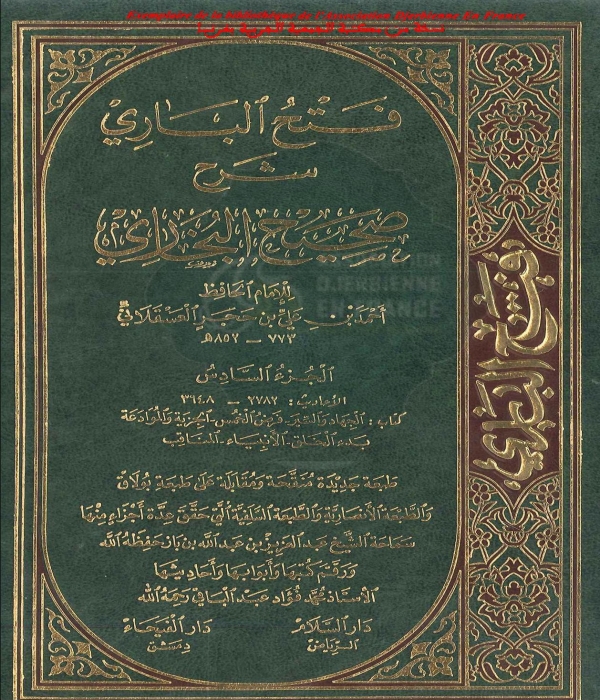 Exemplaire de la bibliothèque de l'Association Djerbienne En France
نسخة من مكتبة الجمعية الجربية بفرنسا
فَتْحُ البَارِيْ
شَرح
صَحِيْحِ البُخَارِيْ
لِلإمَامِ الحَافِظْ
أحْمَد بْنِ عَلِيِّ بن حَجَرٍ العَسْقَلَانِيِّ
٧٧٣ - ٨٥٢هـ
الجُزءُ السَّادِسُ
الأحاديث: ٢٧٨٢ - ٣٦٤٨
كتاب: الجهاد والسّير - فرض الخُمس - الجزية والموادعة
بدء الخلق - الأنبياء - المناقب
طَبعَة جَديدَة مُنَقَّحَة ومُقَابَلَة عَلى طَبعَة بُولَاق
والطَّبعَة الأنصَاريَّة والطَّبعَة السَّلَفيَّة الَّتي حَقَّقَ عِدَّة أجْزاءٍ مِنْهَا
سَمَاحَة الشَّيْخ عبد العَزيْز بن عَبدالله بن بَاز حَفِظهُ الله
وَرقَّم كتبهَا وَأبوابهَا وَأحَاديثهَا
الأستاذ محمّد فُؤَاد عَبد البَاقي رَحِمَهُ الله
دَار السَّلَام
الريَاض
دَار الفَيحَاء
دِمَشق
فتح الباري
ASSOCIATION
DJERBIENNE
EN FRANCE